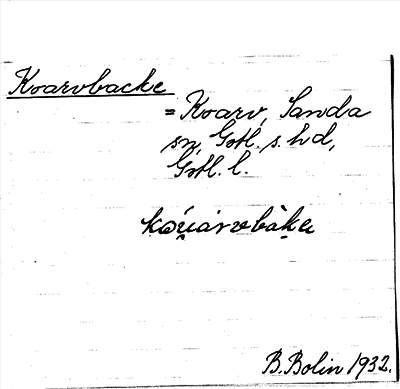 Kvarvbacke
= Kvarv, Sanda
sn, Gotl. s. hd,
Gotl. l.
B. Bolin 1932.